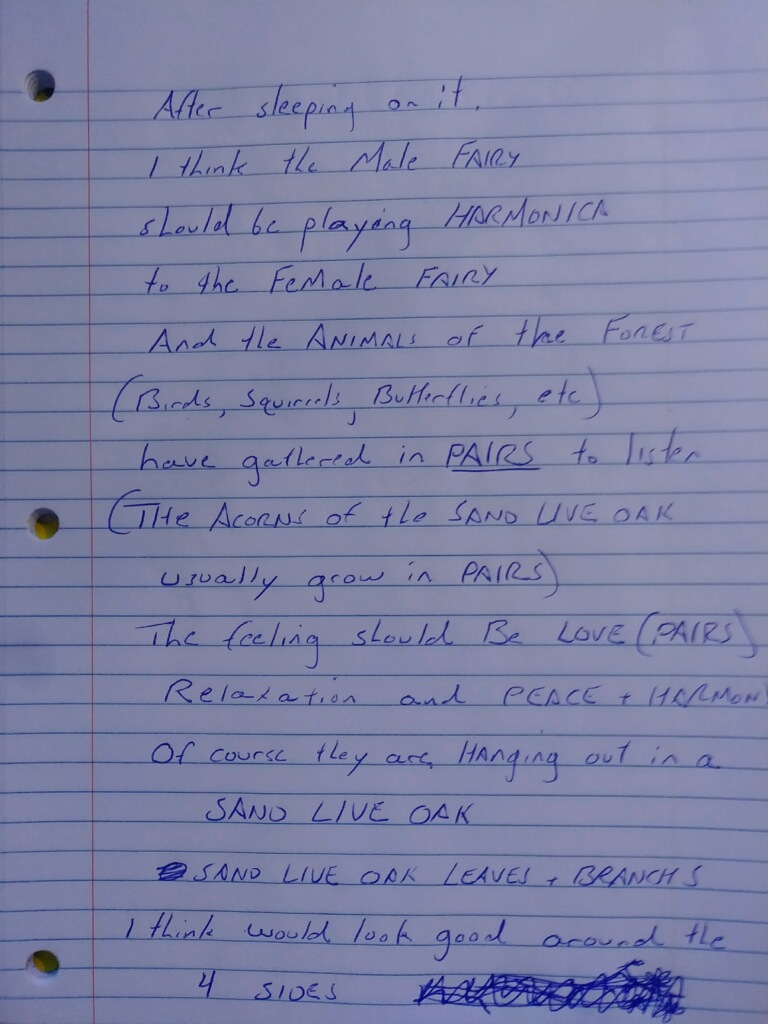 After sleeping on it.
I think the Male FAIRY
should be playing HARMONICA
to the FeMale FAIRY
And the ANIMALS OF the FOREST
(Birds, Squirrels, Butterflies, etc)
have gathered in PAIRS to listen
(THe ACORNS OF the SAND LIVE OAK
usually grow in PAIRS)
The feeling should Be LOVE (PAIRS)
Relaxation and PEACE + HARMONY
Of course they are HAnging out in a
SAND LIVE OAK
SAND LIVE OAK LEAVES + BRANCHS
I think would look good around the
4 SIDES